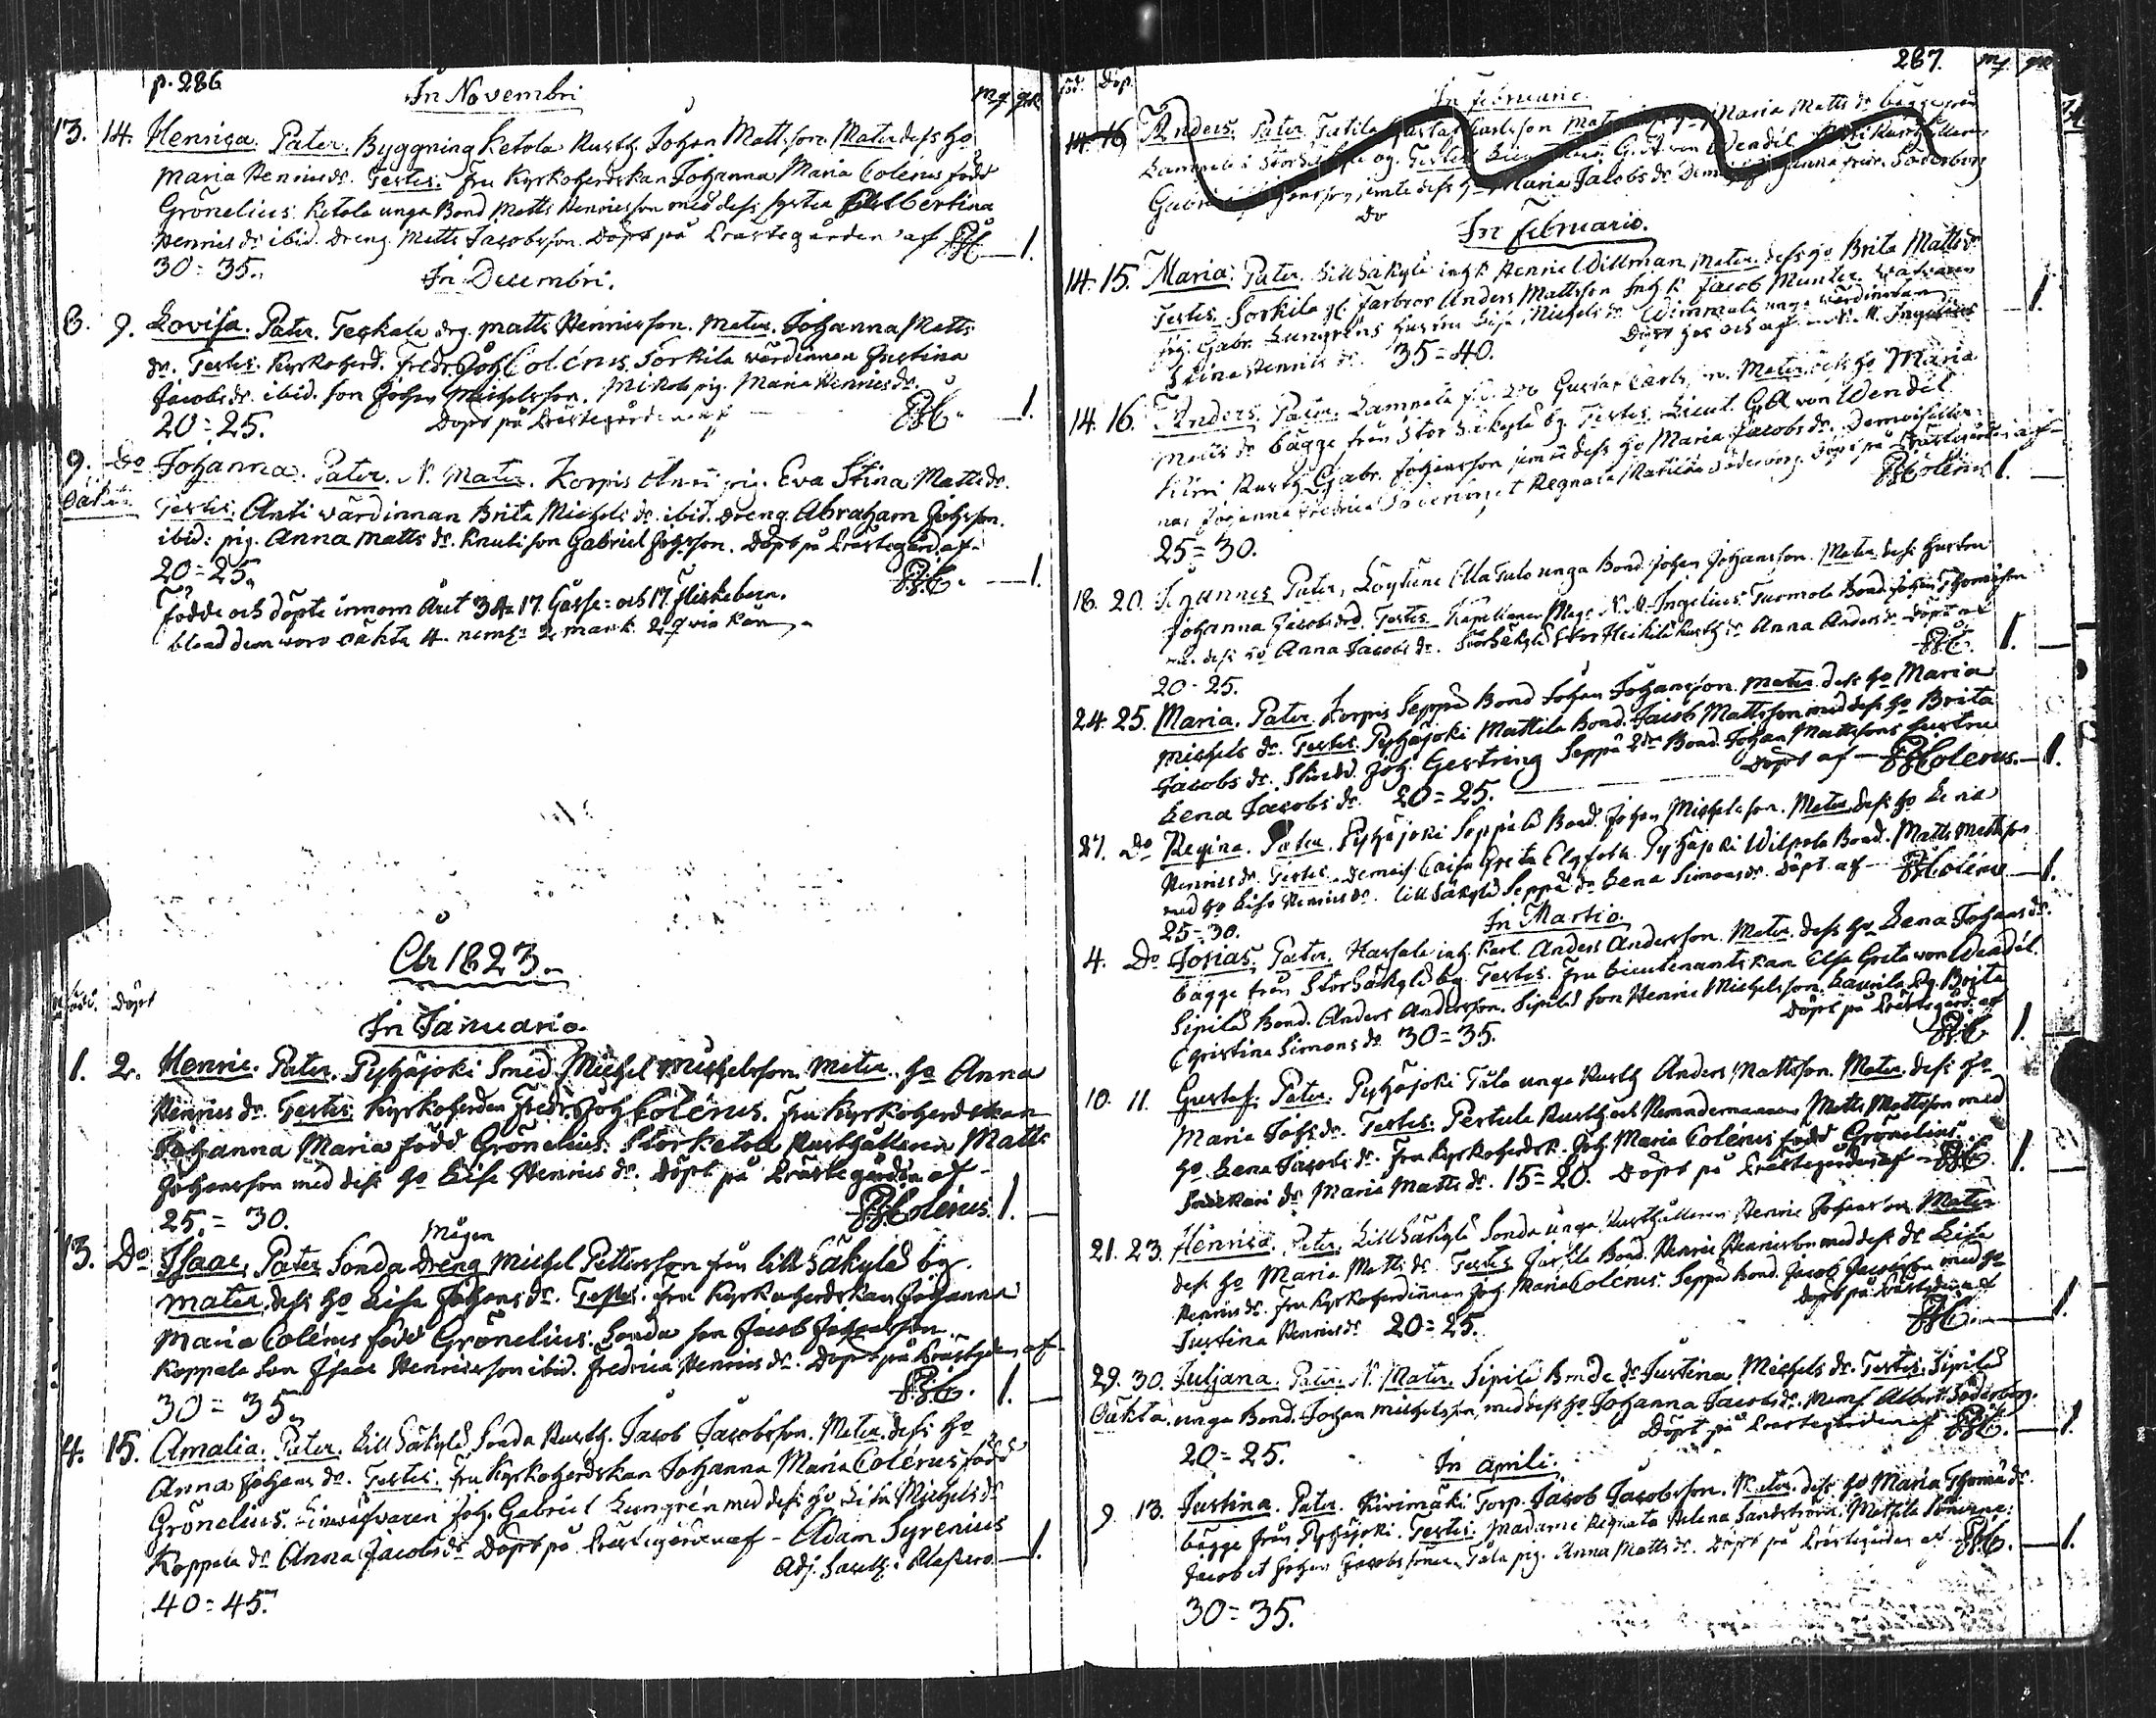 p. 286
In Novembri
mq qk
13. 14. Henrica. Pater. Byggning Ketola Rusth. Johan Mattsson. Mater dess ho
Maria Henricsdr. Testes. Fru Kyrkoherdskan Johanna Maria Colérus född
Grönelius. Ketola unga Bond Matts Henricsson med dess syster Albertina
Henricsdr ibid. dreng Matts Jacobsson. Döpt på Prästegården af FJC — 1.
30 = 35.
In Decembri.
8. 9. Lovisa. Pater. Teskala drg. Matts Henricsson. Mater. Johanna Matts
dr. Testes. Kyrkoherd. Fredr. Joh Colérus. Sorkila värdinnan Justina
Jacobsdr. ibid. son Johan Michelsson. Mikola pig. Maria Henricsdr.
20 = 25. Döpt på Prästegården af — FJC. — 1.
9. Do Johanna. Pater. N. Mater. Korpis Anti pig. Eva Stina Mattsdr.
Oäkta Testes. Anti värdinnan Brita Michelsdr. ibid. dreng Abraham Johsson.
ibid: pig. Anna Mattsdr. Knuti son Gabriel Johsson. Döpt på Prästegård. af
20 = 25. FJC. — 1.
Födde och döpte innom Året 34 = 17. Gosse- och 17. flickebarn.
bland dem voro oäkta 4. neml: 2 mank. 2 qvin kön
År 1823.
Döpt
In Januario.
1. 2. Henric. Pater. Pyhäjoki Smed Michel Michelsson. Mater. ho Anna
Henricsdr. Testes Kyrkoherden Fredr. Joh Colérus. Fru Kyrkoherdskan
Johanna Maria född Grönelius. Storketola Rusthållaren Matts
Johansson med dess ho Lisa Henricsdr. Döpt på Prästegården af
25 = 30. FJColérus. 1. —
Mågen
13. Do Isaac, Pater Sonda Dreng Michel Pettersson från Lill Säkylä by.
Mater, dess ho Lisa Johansdr. Testes. Fru Kyrkoherdskan Johanna
Maria Colérus född Grönelius. Sonda son Jacob Johansson
Koppala Son Isaac Henricsson ibid. Fredrica Henricsdr. Döpt på Prästegården af
30 = 35. FJC. 1. —
4. 15. Amalia. Pater. Lill Säkylä Sonda Rusth. Jacob Jacobsson. Mater. dess ho
Anna Johansdr. Testes. Fru Kyrkoherdskan Johanna Maria Colérus född
Grönelius. Linväfvaren Joh. Gabriel Lungrén med dess ho Lisa Michelsdr
Koppala dr Anna Jacobsdr Döpt på Prästegården af - Adam Syrenius
Adj. Sacelli i Alastaro — 1.
40 = 45.
287. mq qk
föd. Döp.
In februario
14. 16. Anders. Pater. Gustaf Carlsson Mater Maria Mattsdr bägge från
Testes G. A. von Wendel
Maria Jacobsdr Söderborg
Do
In Februario.
14. 15. Maria. Pater. Lill Säkylä inh. Henric Willman. Mater. dess ho Brita Mattsdr
Testes. Sorkila gl. farbror Anders Mattsson Inh. Jacob Munter
Joh. Gabr. Lungrens hustru Lisa Michelsdr unga värdinnan
Stina Henricsdr. 35 = 40. Döpt hos och af N. Ingelius — 1.
14. 16. Anders. Pater. Lammala Gustav Carlsson. Mater. dess ho Maria
Mattsdr bägge från Stor Säkylä by. Testes. Lieut. GA von Wendél
Rusth Gabr. Johansson jemte dess ho Maria Jacobsdr. Demoiseller-
nas Johanna Fredrica et Regnata Söderborg. Döpt på Prästegården af
25 = 30. FJColérus 1. —
18. 20. Johannes Pater, Löytäne unga Bond. Johan Johansson. Mater. dess hustru
Johanna Jacobsdr. Testes Kapellanen Mag. N. A. Ingelius. Turmola Bond. Johan Thomasson
dess ho Anna Jacobsdr. Storsäkylä Stor Heikilä Rusth dr Anna Andersdr Döpt af
20 - 25. FJC. 1. —
24. 25. Maria. Pater. Korpis Seppä Bond Johan Johansson. Mater dess ho Maria
Michelsdr. Testes. Pyhäjoki Mattila Bond. Jacob Mattsson med dess ho Brita
Jacobsdr. Joh. Gestring Seppä Bond. Johan Mattssons hustru
Lena Jacobsdr. 20 = 25. Döpt af — FJColerus. — 1.
27. Do Regina. Pater. Pyhäjoki Seppälä Bond. Johan Michelsson. Mater. dess ho Lena
Henricsdr. Testes. Demois. Caisa Greta Elgfoth. Pyhäjoki Wilpola Bond. Matts Mattsson
med ho Lisa Henricsdr. Lill Säkylä Seppä dr Lena Simonsdr. Döpt af — FJColérus — 1.
25 - 30. In Martio
4. Do Josias. Pater. Hassala inh. karl. Anders Andersson. Mater. dess ho Lena Johansdr.
bägge från Storsäkylä by. Testes. Fru Lieutenantskan Elsa Greta von Wendél.
Sipilä Bond. Anders Andersson. Sipilä son Henric Michelsson. Laurila Pig. Brita
Christina Simonsdr 30 = 35. Döpt på Prästegård. af
FJC 1. —
10. 11. Gustaf. Pater. Pyhäjoki Tåla unga Rusth Anders Mattsson. Mater. dess ho
Maria Johsdr. Testes. Pertula Rusth och Nemndemannen Matts Mattsson med
ho Lena Jacobsdr. Fru Kyrkoherdsk. Joh. Maria Colérus född Grönelius.
dr Maria Mattsdr. 15 = 20. Döpt på Prästegården af — FJC. 1. —
21. 23. Henrica. Pater. Lill Säkylä Sonda unga Rusthållaren Henric Johansson Mater
dess ho Maria Mattsdr. Testes Bond. Henric Henricsson med dess dr Lisa
Henricsdr. Fru Kyrkoherdinnan Joh. Maria Colérus. Seppä Bond. Jacob Jacobsson med ho
Justina Henricsdr 20 = 25. Döpt på Prästegården af
FJC. — 1
29. 30. Juljana. Pater. N. Mater. Sipilä Bonde dr Justina Michelsdr. Testes. Sipilä
Oäkta. unga Bond. Johan Michelsson med dess ho Johanna Jacobsdr. Mamsell Albert. Söderborg.
20 = 25. Döpt på Prästegården af FJC. — 1.
In aprili.
9. 13. Justina. Pater. Kivimäki Torp. Jacob Jacobsson. Mater. dess ho Maria Thomædr.
bägge från Pyhäjoki. Testes. Madame Regnata Helena Sandström. Mattila Sönerne:
Jacob et Johan Jacobssöner. Tåla pig. Anna Mattsdr. Döpt på Prästegården af FJC. — 1.
30 = 35.